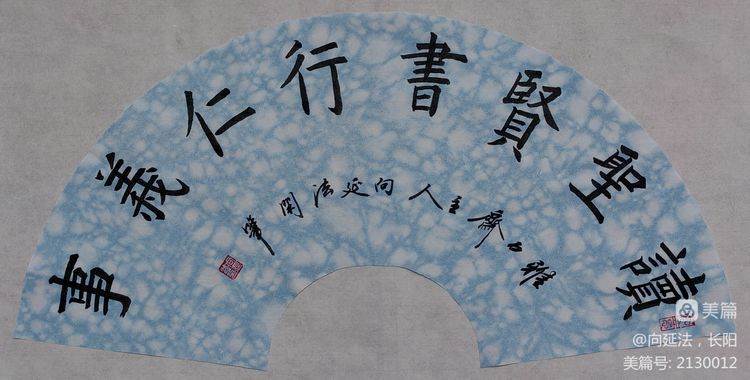 讀聖賢書行仁義事
雅石齋主人向延法閑筆
美篇
@向延法，长阳
美篇号: 2130012